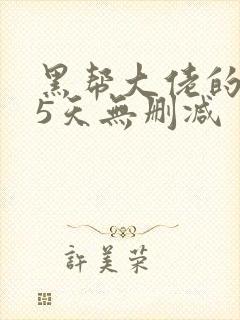 黑帮大佬的
5天無删减
許美荣